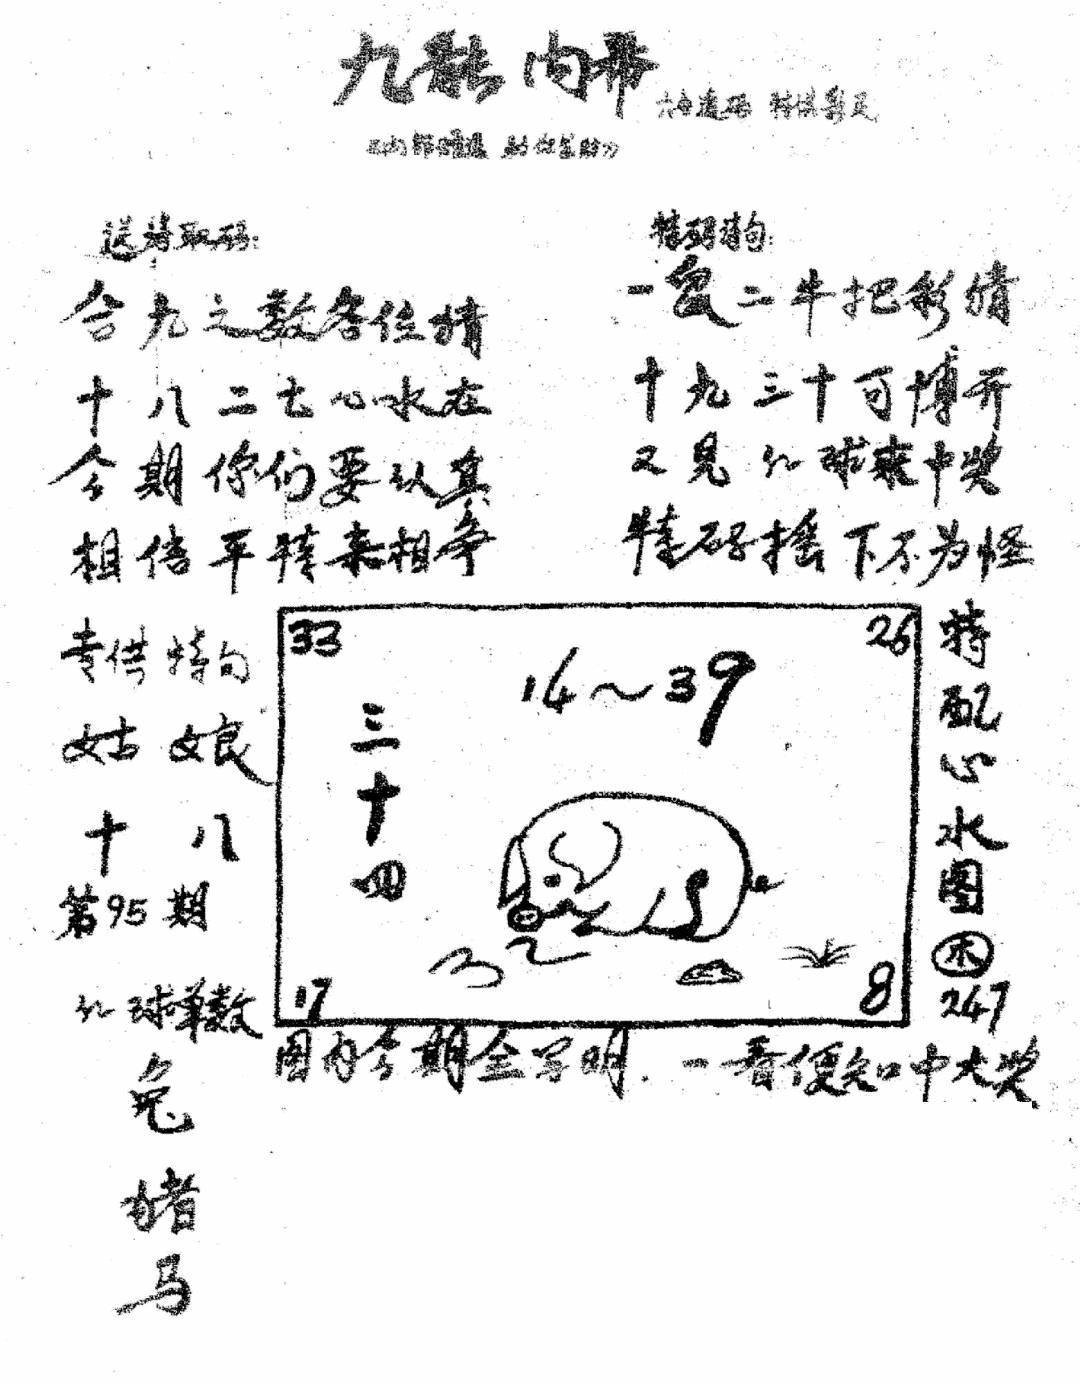 九龍内幕
六合透码 特供彩民
送特取码:
合九之数各位猜
十八二七心水在
今期你们要认真
相信平特来相争
特码诗句:
一兔二牛把彩猜
十九三十可博开
又见红球来中奖
特码摇下不为怪
专供特句
姑娘
十八
第95期
红球单数
兔
猪
马
33
26
14~39
三十四
17
8
特配心水图
木
247
图内今期全写明.一看便知中大奖